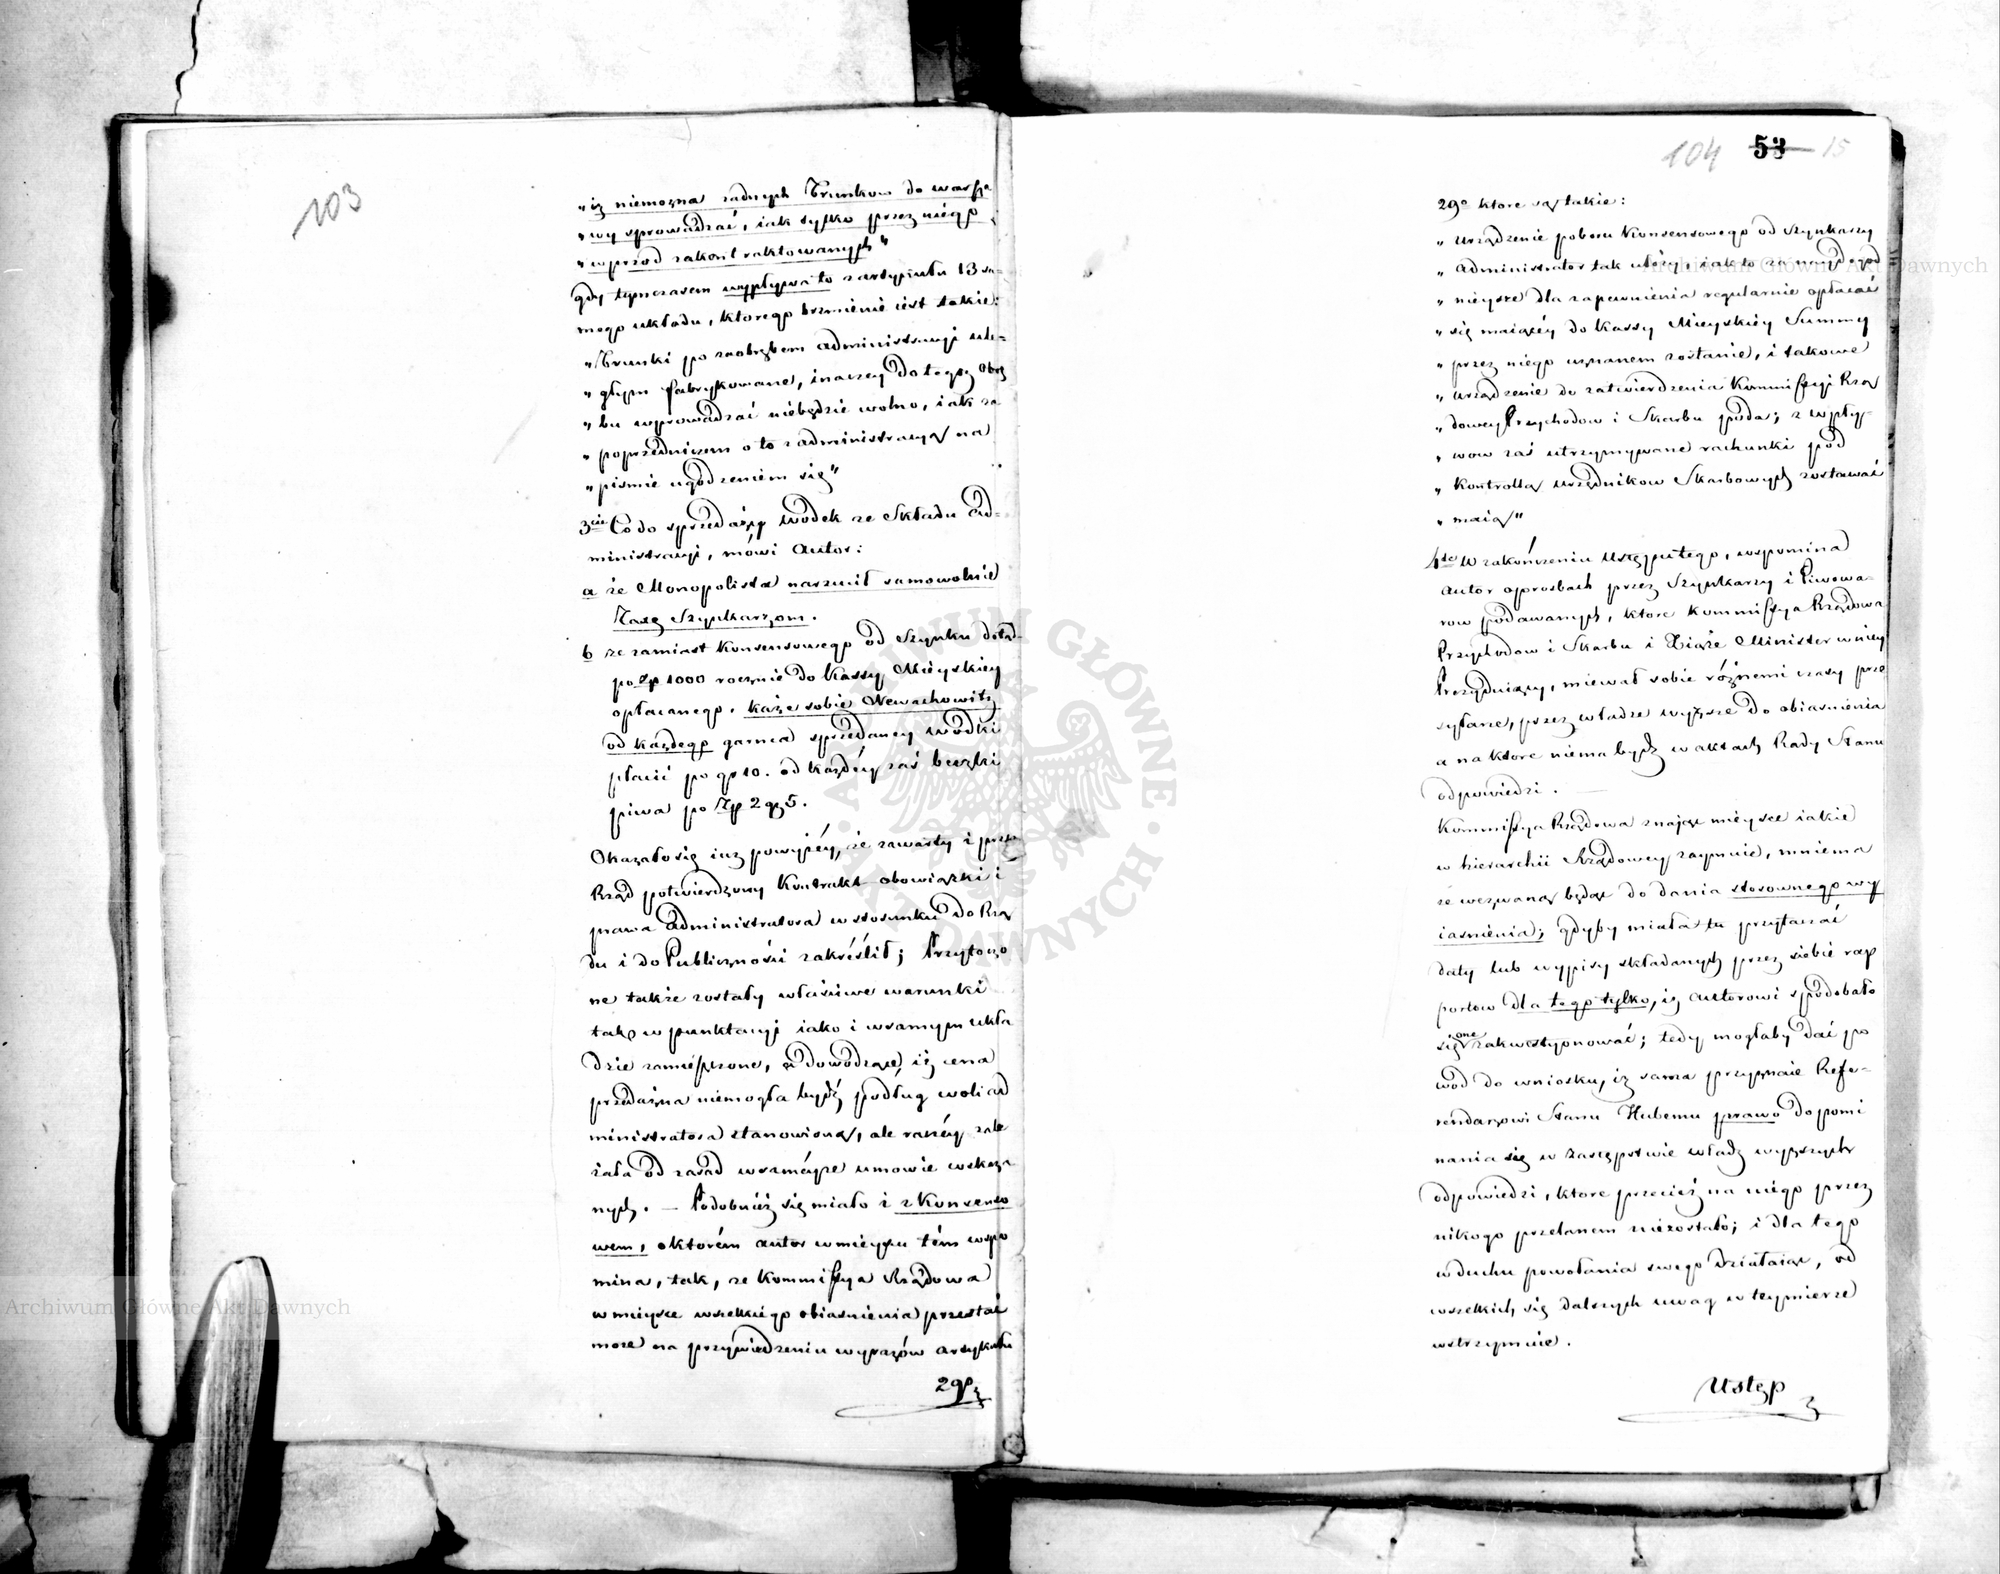 103
„iż niemozna żadnych Trunkow do warsza
„wy sprowadzać, iak tylko przez niego
„wprzod zakontraktowanych"
gdy tymczasem wypływa to z artykułu 13 sa-
mego układu, ktorego brzmienie iest takie:
„Trunki po za obrębem administracyi ule-
„głym fabrykowane, inaczey do tegoż obrę
„bu wprowadzać niebędzie wolno, iak za
„poprzedniczem o to z administracyą na
„pismie ugodzeniem się"
3cie Co do sprzedaży wodek ze Składu Ad-
ministracyi, mówi Autor:
a że Monopolista narzucił samowolnie
Taxę Szynkarzom.
b że zamiast Konsensowego od Szynku dotąd
po Zł 1000 rocznie do Kassy Mieyskiey
opłacanego, każe sobie Newachowitz
od każdego garnca sprzedaney wodki
płacić po gr 10. od każdey zaś beczki
piwa po Złp 2 gr 5.
Okazało się iuż powyżey, że zawarty i przez
Rząd potwierdzony Kontrakt obowiązki i
prawa Administratora w stosunku do Rzą
du i do Publiczności zakreślił; Przytoczo
ne także zostały właściwe warunki
tak w punktacyi iako i w samym ukła
dzie zamieszczone, a dowodzące, iż cena
przedażna niemogła bydź podług woli ad
ministratora stanowioną, ale raczey zale
żała od zasad w sameyże umowie wskaza
nych. — Podobnież się miało i z Konsenso
wem, o ktorém autor w mieyscu tém wspo
mina, tak, że Kommissya Rządowa
w mieysce wszelkiego obiasnienia przestać
może na przywiedzeniu wyrazów artykułu
29go
104 53 15
29o ktore są takie:
„Urządzenie poboru Konsensowego od Szynkarzy
„Administrator tak ułoży, iak to za naydogod
„nieysze dla zapewnienia regularnie opłacać
„się maiącéy do Kassy Mieyskiéy Summy
„przez niego uznanem zostanie, i takowe
„urządzenie do zatwierdzenia Kommissyi Rzą
„dowey Przychodow i Skarbu poda; z wpły-
„wow zaś utrzymywane rachunki pod
„Kontrollą urzędnikow Skarbowych zostawać
„maią"
4te W zakończeniu Ustępu tego, wspomina
autor o prosbach przez Szynkarzy i Piwowa-
row podawanych, ktore Kommissya Rządowa
Przychodow i Skarbu i Xiąże Minister w niey
Prezyduiący, miewał sobie różnemi czasy prze
syłane, przez władze wyższe do obiasnienia
a na ktore niema bydź w aktach Rady Stanu
odpowiedzi. —
Kommissya Rządowa znaiąc mieysce iakie
w hierarchii Rządowey zaymuie, mniema
że wezwaną będąc do dania stosownego wy
iasnienia; gdyby miała tu przytaczać
daty lub wypisy składanych przez siebie rap
portow dla tego tylko, iż autorowi spodobało
się one zakwestyonować; tedy mogłaby dać po
wod do wniosku, iż sama przyznaie Refe-
rendarzowi Stanu Hubemu prawo dopomi
nania się w zastępstwie władz wyższych
odpowiedzi, ktore przecież na niego przez
nikogo przelanem niezostało; i dla tego
w duchu powołania swego działaiąc, od
wszelkich się dalszych uwag w teymierze
wstrzymuie.
Ustęp
Archiwum Główne Akt Dawnych
Archiwum Główne Akt Dawnych
ARCHIWUM GŁÓWNE · AKT DAWNYCH ·